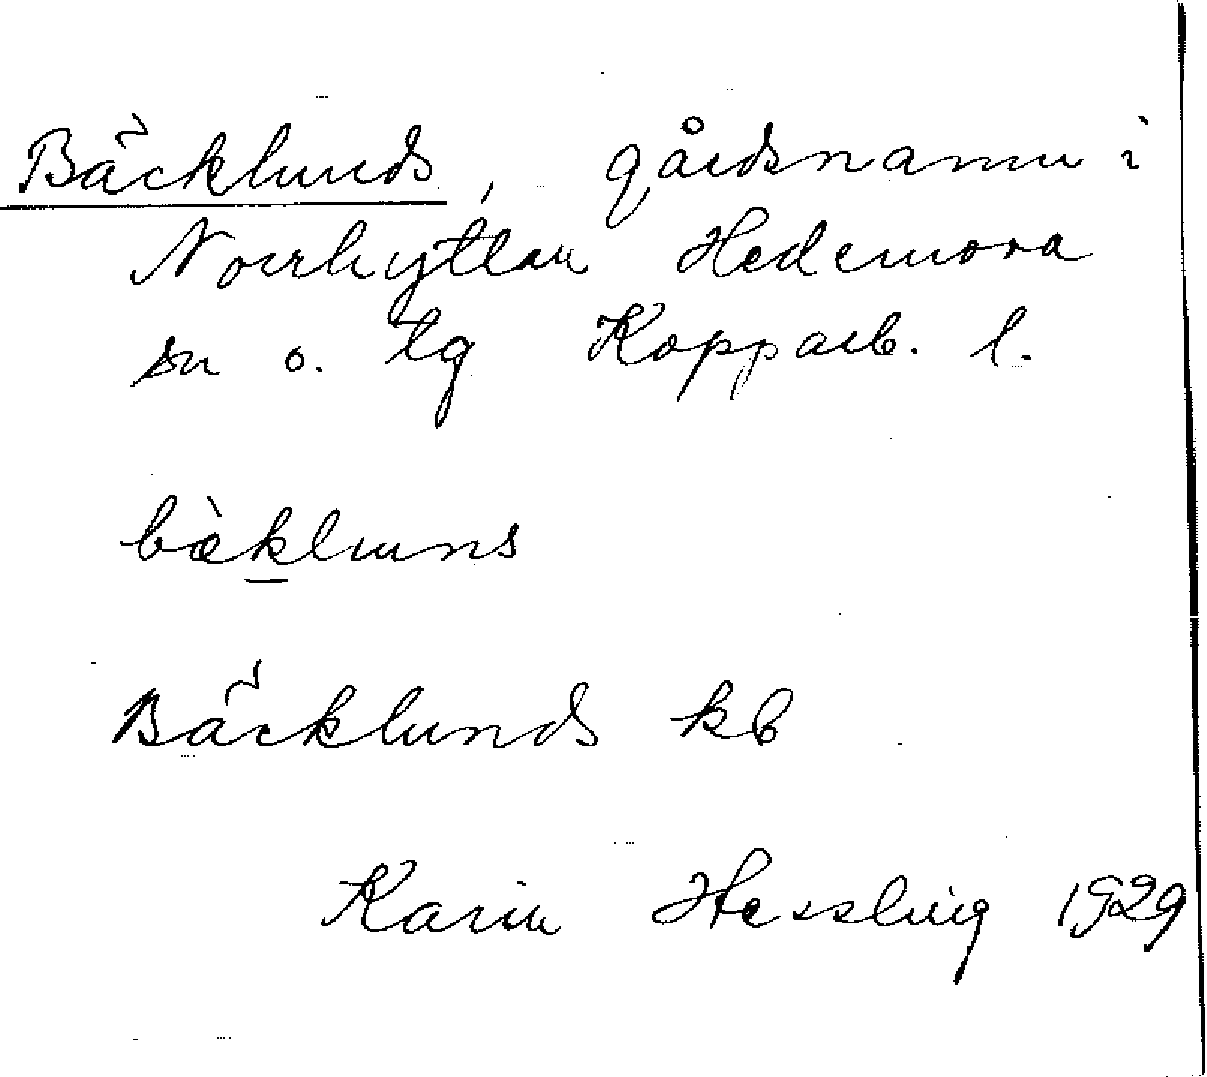 Bäcklunds, gårdsnamn i
Norrhyttan Hedemora
sn o. tg Kopparb. l.
bæ̀kluns
Bäcklunds kb
Karin Hessling 1929